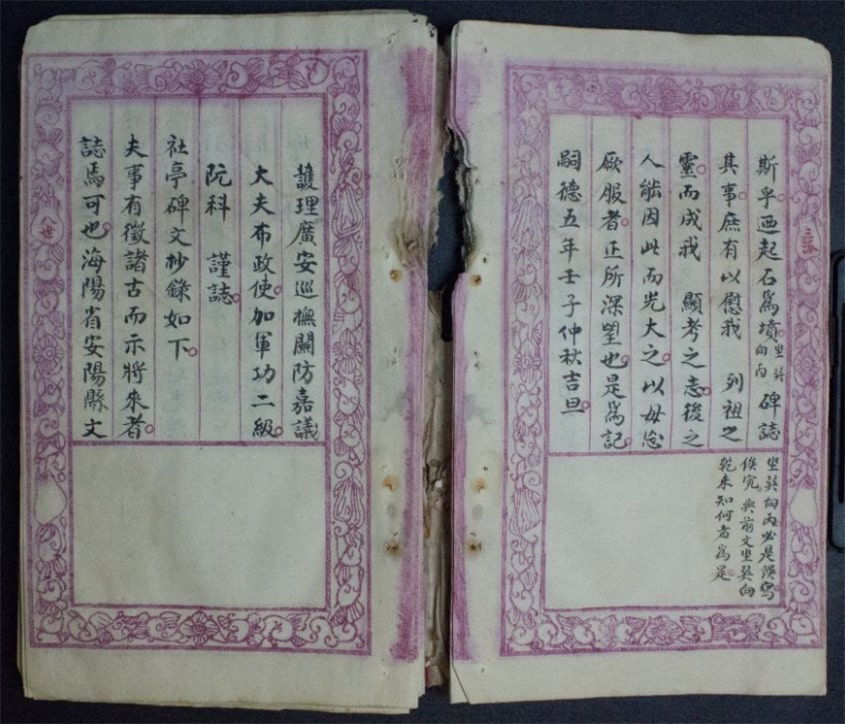 斯乎廼起石爲墳坐巽向丙碑誌
其事庶有以慰我 列祖之
靈而成我 顯考之志後之
人能因此而光大之以毋忝
厥服者正所深望也是爲記
嗣德五年壬子仲秋吉旦
坐巽向丙必是誤寫
俟究與前文坐巽向
乾未知何者爲是
護理廣安巡撫關防嘉議
大夫布政使加軍功二級
阮科 謹誌
社亭碑文抄錄如下
夫事有徵諸古而示將來者
誌焉可也海陽省安陽縣文